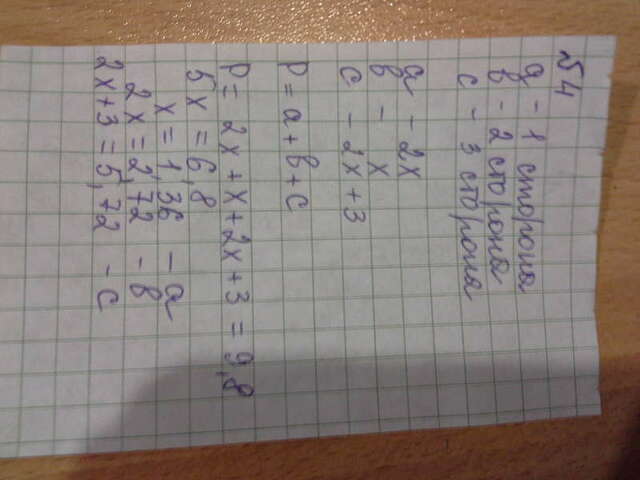 №4
a - 1 сторона
в - 2 сторона
с - 3 сторона
a - 2x
в - x
с - 2x+3
P = a+в+c
P = 2x+x+2x+3 = 9,8
5x = 6,8
x = 1,36 - a
2x = 2,72 - в
2x+3 = 5,72 - c